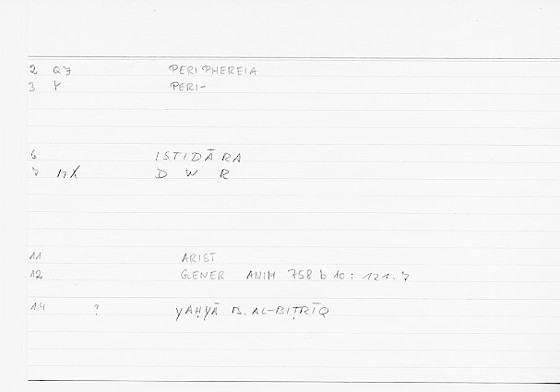 2 QJ PERIPHEREIA
3 Y PERI-
6 ISTIDĀRA
7 MX D W R
11 ARIST
12 GENER ANIM 758 b 10: 121.7
14 ? YAḤYĀ B. AL-BIṬRĪQ